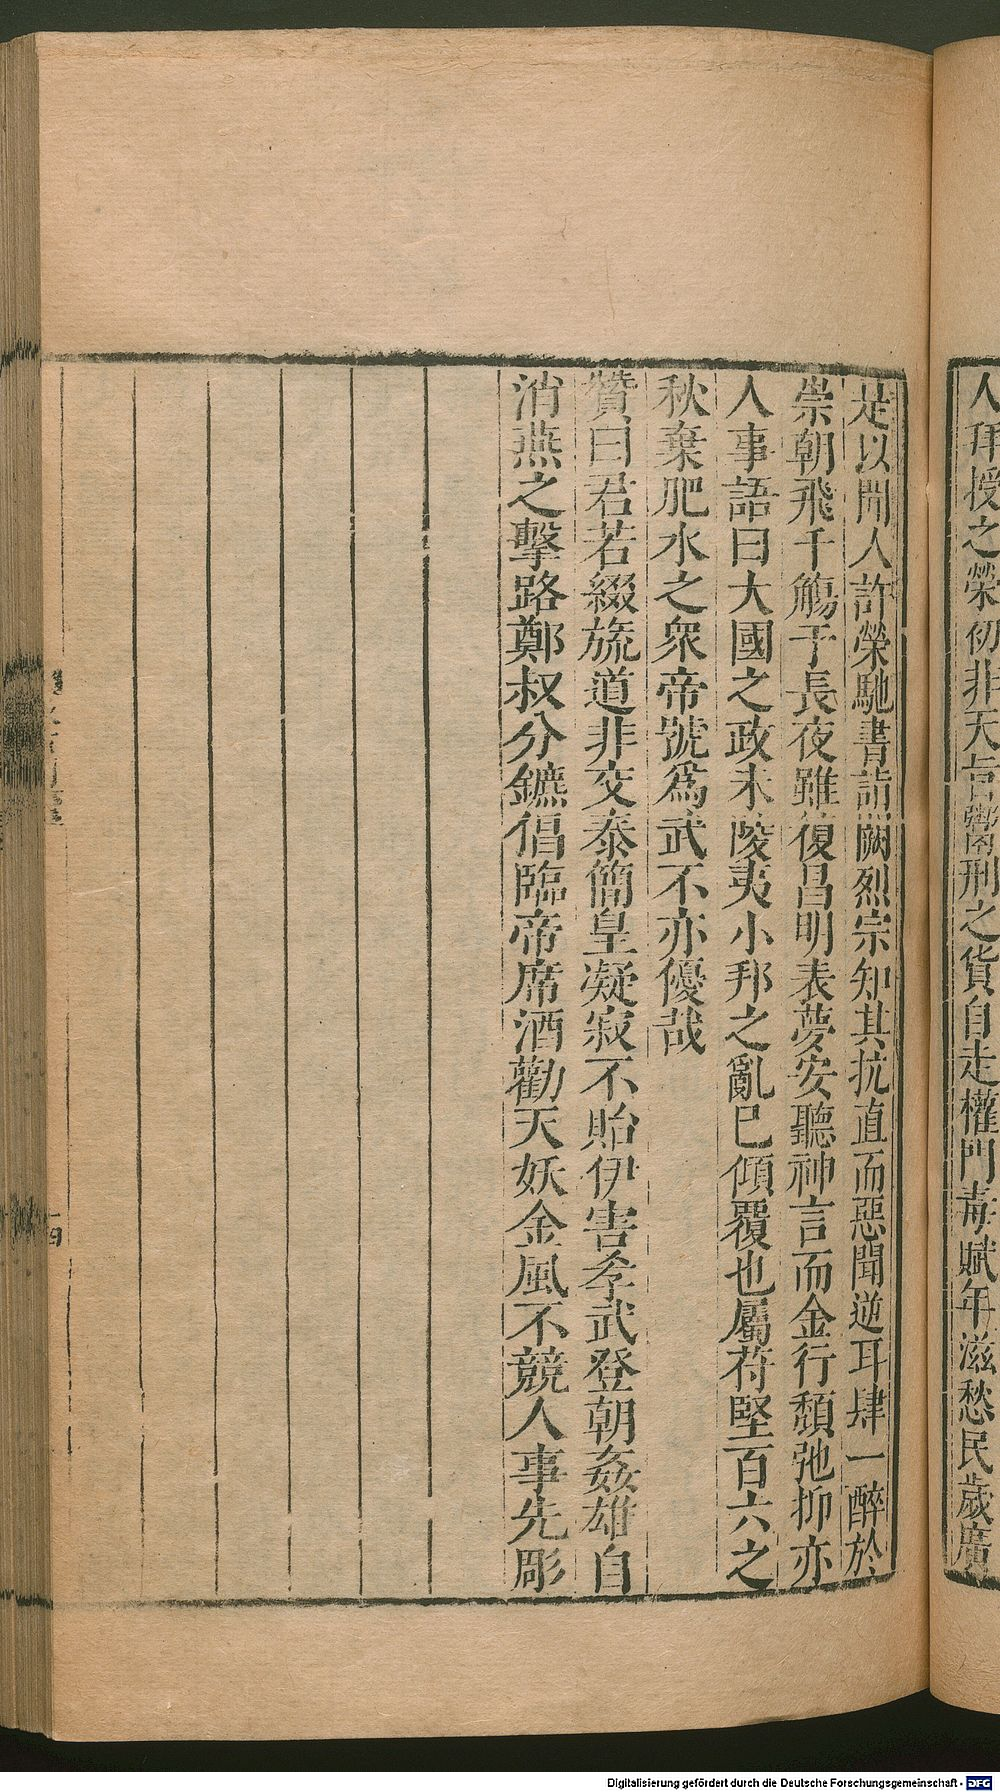 人拜授之榮初非天旨鬻刑之貨自走權門毒賦年滋愁民歲廣
是以聞人許榮馳書詣闕烈宗知其抗直而惡聞逆耳肆一醉於
崇朝飛千觴于長夜雖復昌明表夢安聽神言而金行頹弛抑亦
人事語曰大國之政未陵夷小邦之亂已傾覆也屬苻堅百六之
秋棄肥水之衆帝號爲武不亦優哉
贊曰君若綴旒道非交泰簡皇凝寂不貽伊害孝武登朝姦雄自
消燕之擊路鄭叔分鑣倡臨帝席酒勸天妖金風不競人事先彫
Digitalisierung gefördert durch die Deutsche Forschungsgemeinschaft - DFG